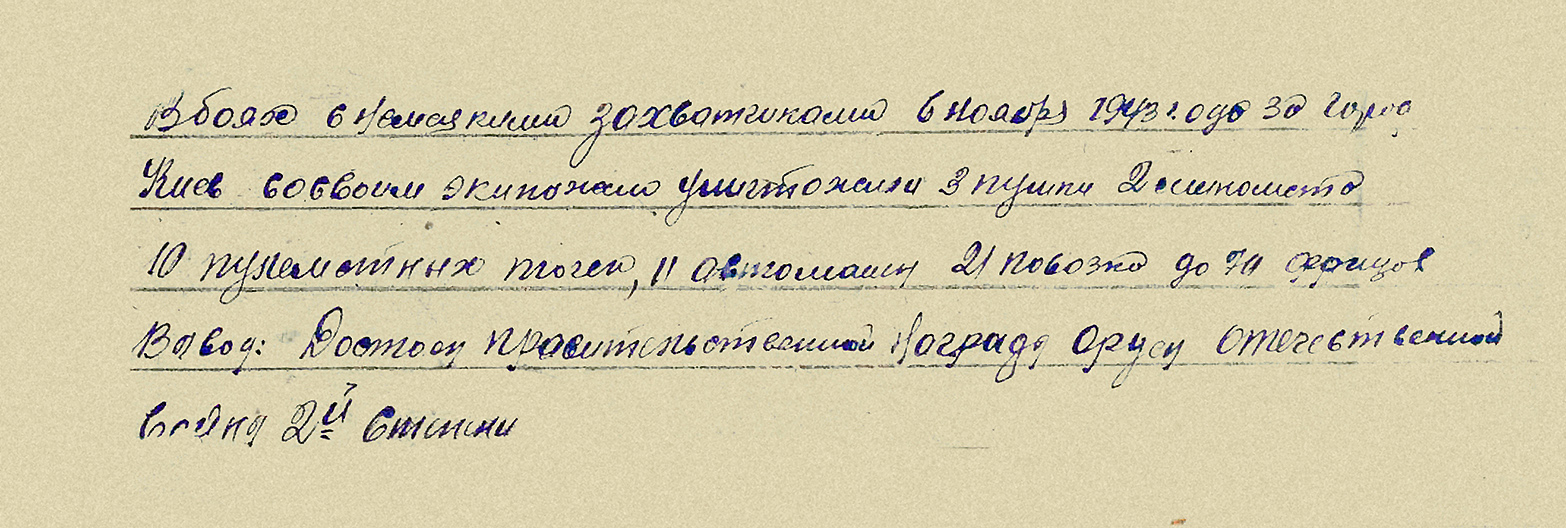 В боях с немецкими захватчиками 6 ноября 1943 года за город
Киев со своим экипажем уничтожили 3 пушки 2 миномета
10 пулеметных точек, 11 автомашин 21 повозка до 70 фрицов
Вывод: Достоен правительственной награды Отечественной
войны 2й степени